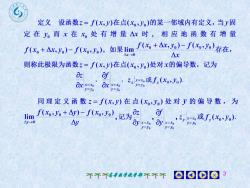 定义 设函数z = f(x,y)在点(x₀,y₀)的某一邻域内有定义,当y固
定在y₀而x在x₀处有增量Δx时,相应地函数有增量
f(x₀ + Δx,y₀) − f(x₀,y₀), 如果lim_{Δx→0} (f(x₀ + Δx,y₀) − f(x₀,y₀))/Δx 存在,
则称此极限为函数z = f(x,y)在点(x₀,y₀)处对x的偏导数, 记为
∂z/∂x|_{x=x₀, y=y₀}, ∂f/∂x|_{x=x₀, y=y₀}, z_x|_{x=x₀, y=y₀}或f_x(x₀,y₀).
同理定义函数z = f(x,y)在点(x₀,y₀)处对y的偏导数, 为
lim_{Δy→0} (f(x₀,y₀ + Δy) − f(x₀,y₀))/Δy, 记为∂z/∂y|_{x=x₀, y=y₀}, ∂f/∂y|_{x=x₀, y=y₀}, z_y|_{x=x₀, y=y₀}或f_y(x₀,y₀).
3